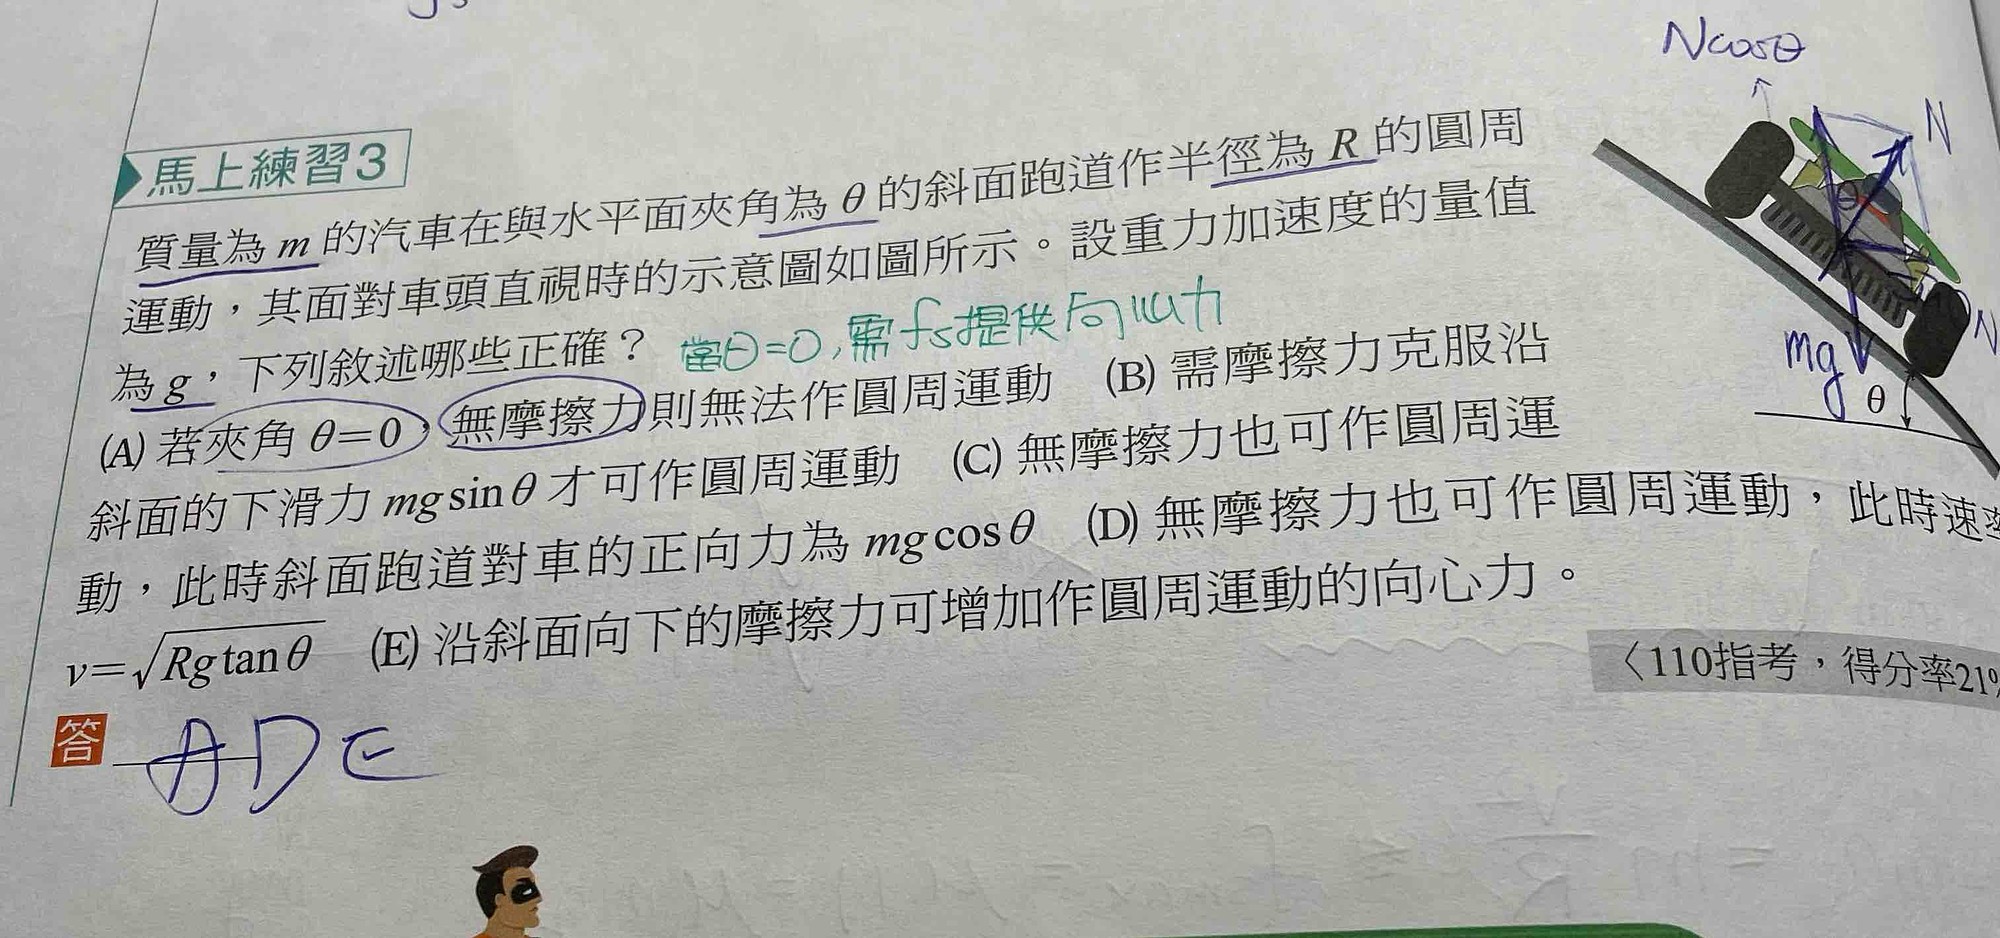 Ncosθ
馬上練習3
N
質量為 m 的汽車在與水平面夾角為 θ 的斜面跑道作半徑為 R 的圓周
運動，其面對車頭直視時的示意圖如圖所示。設重力加速度的量值
為 g，下列敘述哪些正確？ 當θ=0，需fs提供向心力
θ
N
mg
θ
(A) 若夾角 θ=0，無摩擦力則無法作圓周運動 (B) 需摩擦力克服沿
斜面的下滑力 mg sinθ 才可作圓周運動 (C) 無摩擦力也可作圓周運
動，此時斜面跑道對車的正向力為 mg cosθ (D) 無摩擦力也可作圓周運動，此時速率
v=√Rg tanθ (E) 沿斜面向下的摩擦力可增加作圓周運動的向心力。
〈110指考，得分率21%
答 ADE